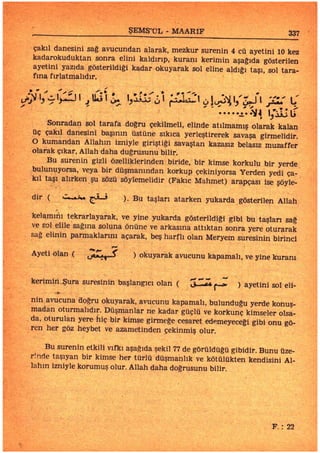 ŞEMS'ÜL - MAARIF 337
çakıl danesini sağ avucundan alarak, mezkur surenin 4 cü ayetini 10 kez
kadarokuduktan sonra elini kaldırıp, kuranı kerimin aşağıda gösterilen
ayetini yazıda gösterildiği kadar okuyarak sol eline aldığı taşı, sol tara-
fına fırlatmalıdır.
Sonradan sol tarafa doğru çekilmeli, elinde atılmamış olarak kalan
üç çakıl danesini başının üstüne sıkıca yerleştirerek savaşa girmelidir.
O kumandan Allahın izniyle giriştiği savaştan kazasız belasız muzaffer
olarak çıkar, Allah daha doğrusunu bilir.
Bu surenin gizli özelliklerinden biride, bir kimse korkulu bir yerde
bulunuyorsa, veya bir düşmanından korkup çekiniyorsa Yerden yedi ça-
kıl taşı alırken şu sözü söylemelidir (Fakıc Mahmet) arapçası ise şöyle-
dir ( ). Bu taşları atarken yukarda gösterilen Allah
kelamını tekrarlayarak, ve yine yukarda gösterildiği gibi bu taşları sağ
ve sol elile sağına soluna önüne ve arkasına attıktan sonra yere oturarak
sağ elinin parmaklarını açarak, beş harflı olan Meryem suresinin birinci
Ayeti olan ( كهيعص ) okuyarak avucunu kapamalı, ve yine kuranı
kerimin Şura suresinin başlangıcı olan ( حم عسق ) ayetini sol eli-
nin avucuna doğru okuyarak, avucunu kapamalı, bulunduğu yerde konuş-
madan oturmalıdır. Düşmanlar ne kadar güçlü ve korkunç kimseler olsa-
da, oturulan yere hiç bir kimse girmeğe cesaret edemeyeceği gibi onu gö-
ren her göz heybet ve azametinden çekinmiş olur.
Bu surenin etkili vıfkı aşağıda şekil 77 de görüldüğü gibidir. Bunu üze-
rinde taşıyan bir kimse her türlü düşmanlık ve kötülükten kendisini Al-
lahın izniyle korumuş olur. Allah daha doğrusunu bilir.
F. : 22